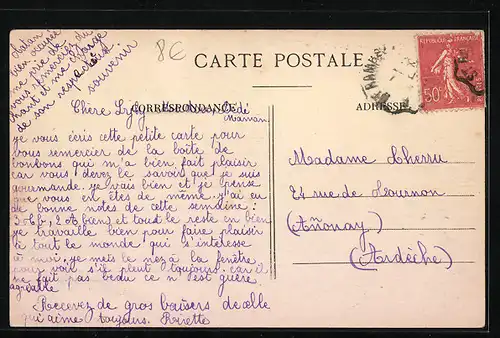 8€
bien occupée
me prie de
vous remercier du
chant et me charge
de son respectueux
souvenir
CARTE POSTALE
REPUBLIQUE FRANÇAISE
50c
CORRESPONDANCE
ADRESSE
Chère
Maman
je vous écris cette petite carte pour
vous remercier de la boîte de
bonbons qui m'a bien fait plaisir
car vous devez le savoir que je suis
gourmande. je vais bien et je pense
que vous en êtes de même. j'ai eu
de bonne notes de cette semaine:
et tout le reste en bien
je travaille bien pour faire plaisir
à tout le monde qui s'interesse
à moi. je mets le nez à la fenêtre
pour voir s'il pleut toujours. car il
ne fait pas beau ce n'est guère
agréable
Recevez de gros baisers de celle
qui aime toujours. Rosette
Madame Cherru
24 rue de Tournon
(Annonay)
(Ardèche)